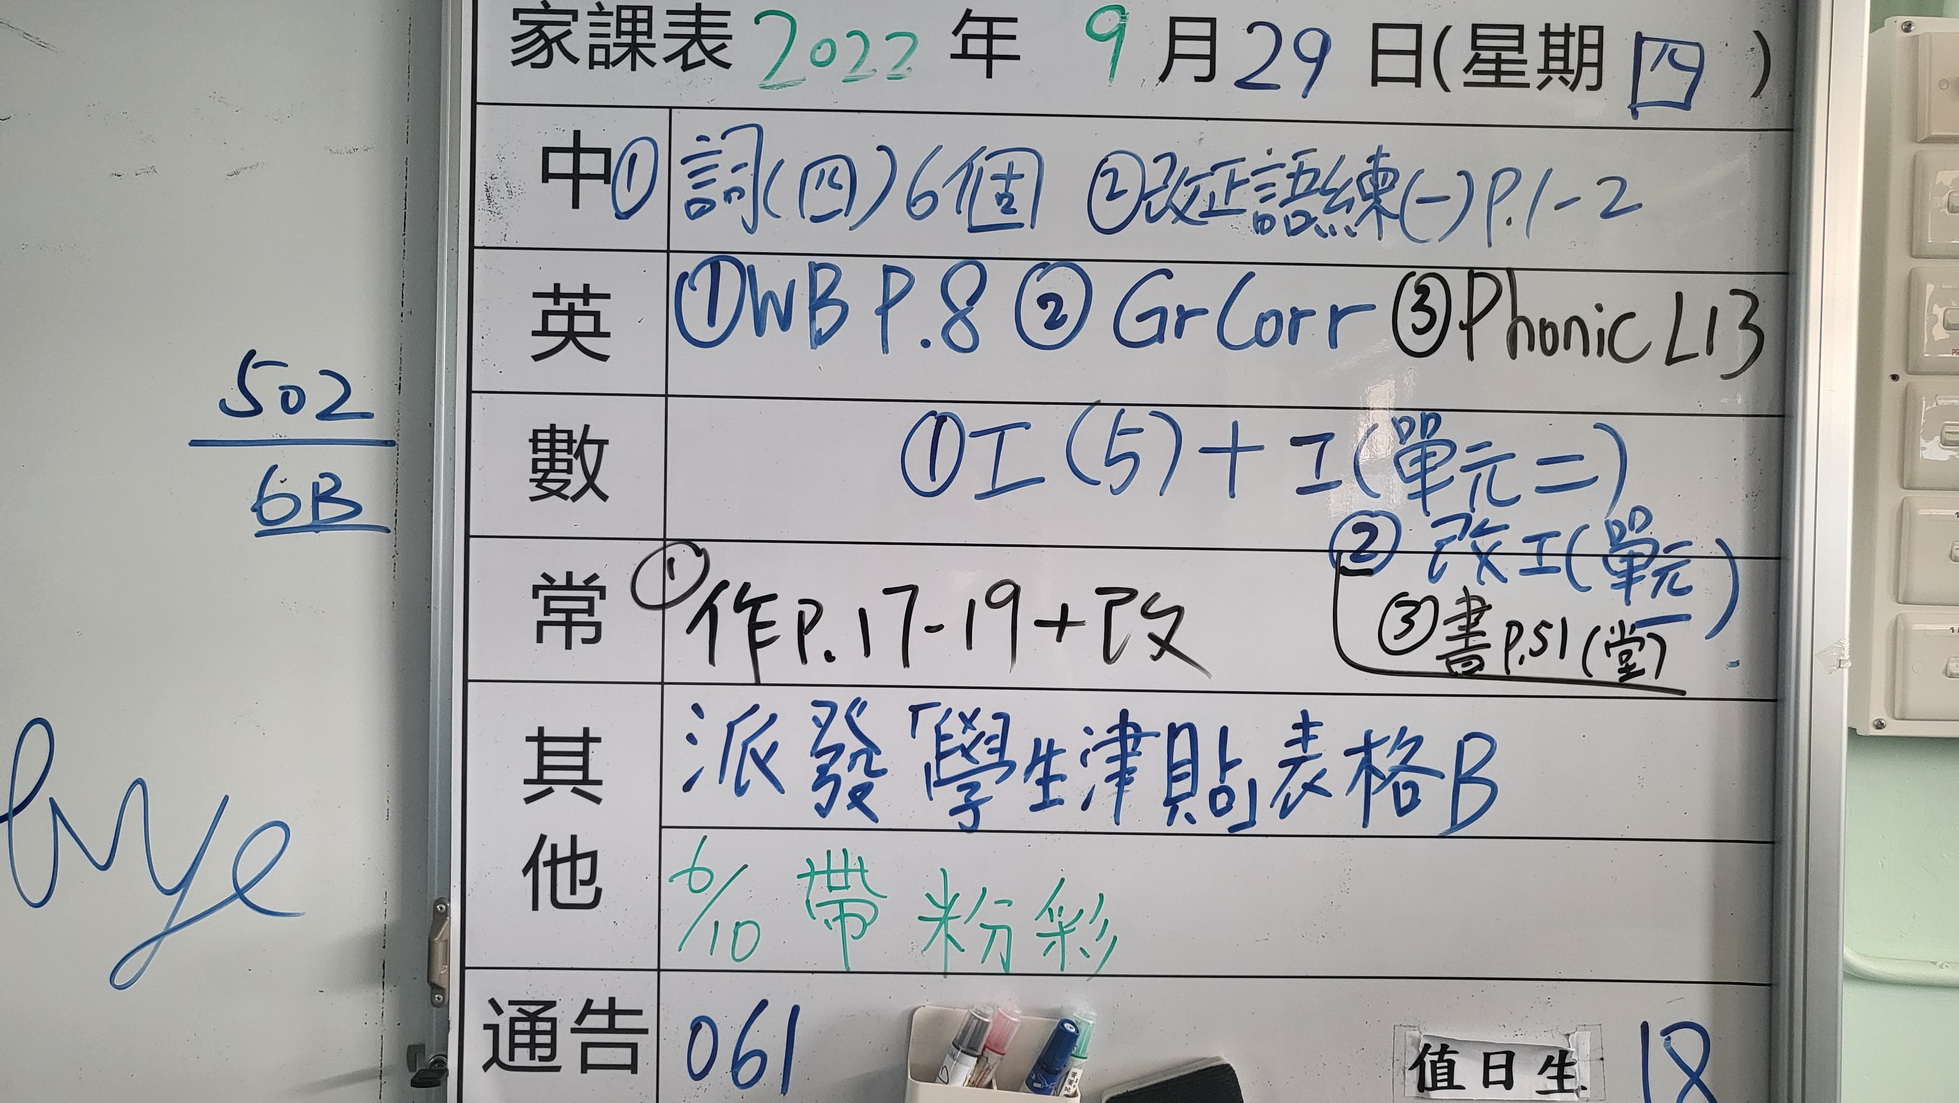 家課表 2022 年 9 月 29 日(星期 四 )
中 ① 詞(四)6個 ②改正語練(一)P.1-2
英 ①WB P.8 ② Gr Corr ③Phonic L13
數 ①工(5)+工(單元二)
② 改工(單元一)
③書P.51(堂)
常 ①作P.17-19+改
其他 派發「學生津貼」表格B
6/10 帶粉彩
通告 061
值日生 18
502
6B
bye